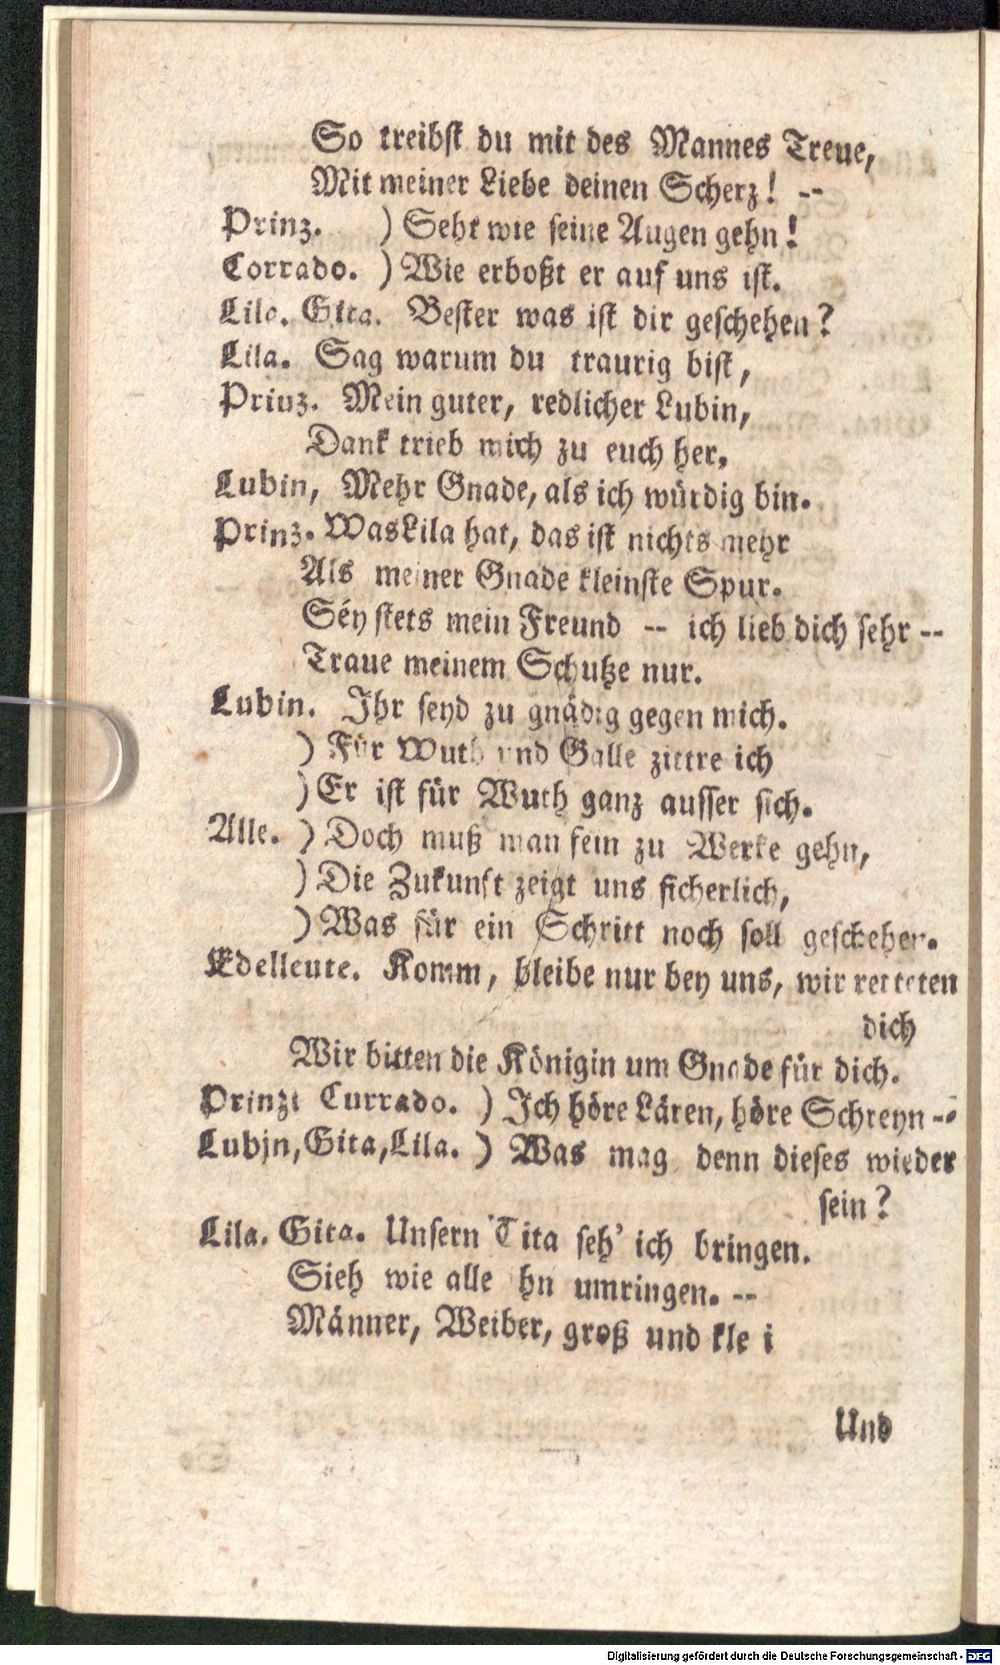 So treibst du mit des Mannes Treue,
Mit meiner Liebe deinen Scherz! --
Prinz. ) Seht wie seine Augen gehn!
Corrado. ) Wie erboßt er auf uns ist.
Lila. Gita. Bester was ist dir geschehen?
Lila. Sag warum du traurig bist,
Prinz. Mein guter, redlicher Lubin,
Dank trieb mich zu euch her,
Lubin, Mehr Gnade, als ich würdig bin.
Prinz. Was Lila hat, das ist nichts mehr
Als meiner Gnade kleinste Spur.
Séy stets mein Freund -- ich lieb dich sehr --
Traue meinem Schutze nur.
Lubin. Ihr seyd zu gnädig gegen mich.
) Für Wuth und Galle zittre ich
) Er ist für Wuth ganz ausser sich.
Alle. ) Doch muß man fein zu Werke gehn,
) Die Zukunft zeigt uns sicherlich,
) Was für ein Schritt noch soll geschehen.
Edelleute. Komm, bleibe nur bey uns, wir retteten
dich
Wir bitten die Königin um Gnade für dich.
Prinz: Currado. ) Ich höre Lären, höre Schreyn --
Lubin, Gita, Lila. ) Was mag denn dieses wieder
sein?
Lila. Gita. Unsern Tita seh' ich bringen.
Sieh wie alle hn umringen. --
Männer, Weiber, groß und kle i
Und
Digitalisierung gefördert durch die Deutsche Forschungsgemeinschaft - DFG